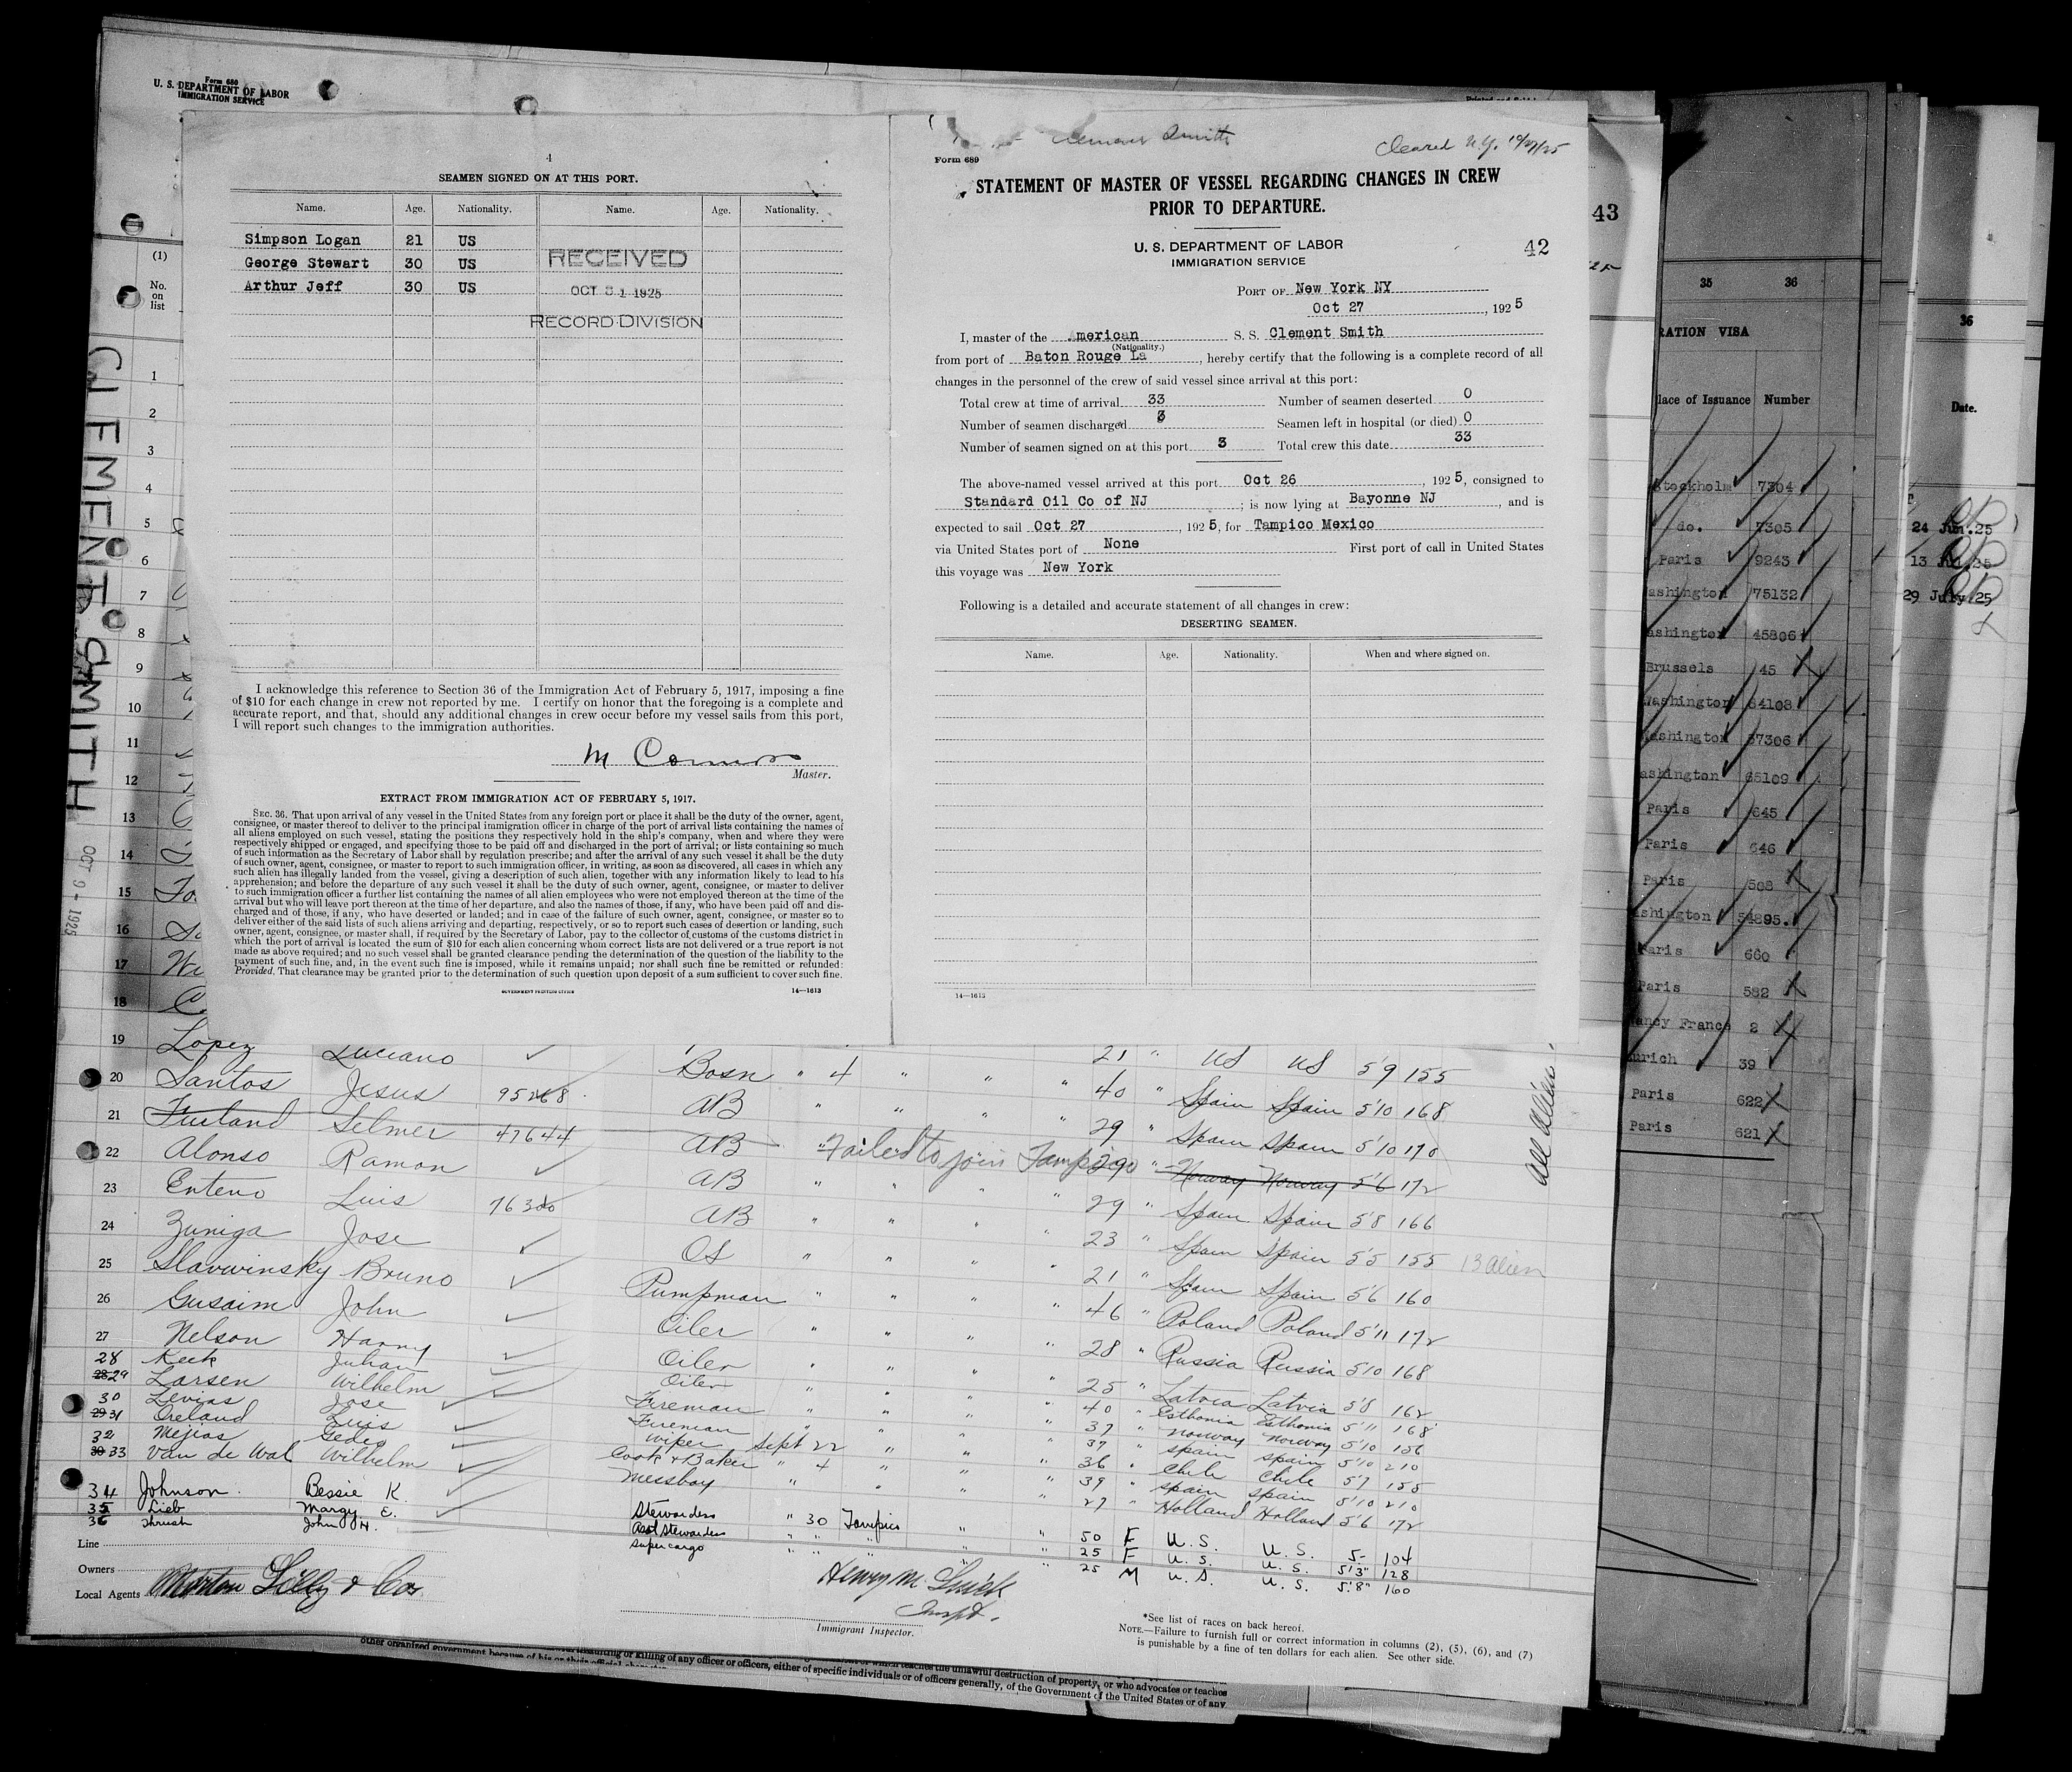 Form 680
U. S. DEPARTMENT OF LABOR
IMMIGRATION SERVICE
(1)
No.
on
list
CLEMENT SMITH
OCT 9 - 1925
4
SEAMEN SIGNED ON AT THIS PORT.
Name. Age. Nationality. Name. Age. Nationality.
Simpson Logan 21 US
George Stewart 30 US
Arthur Jeff 30 US
RECEIVED
OCT 31 1925
RECORD DIVISION
I acknowledge this reference to Section 36 of the Immigration Act of February 5, 1917, imposing a fine
of $10 for each change in crew not reported by me. I certify on honor that the foregoing is a complete and
accurate report, and that, should any additional changes in crew occur before my vessel sails from this port,
I will report such changes to the immigration authorities.
M Connors
Master.
EXTRACT FROM IMMIGRATION ACT OF FEBRUARY 5, 1917.
SEC. 36. That upon arrival of any vessel in the United States from any foreign port or place it shall be the duty of the owner, agent,
consignee, or master thereof to deliver to the principal immigration officer in charge of the port of arrival lists containing the names of
all aliens employed on such vessel, stating the positions they respectively hold in the ship's company, when and where they were
respectively shipped or engaged, and specifying those to be paid off and discharged in the port of arrival; or lists containing so much
of such information as the Secretary of Labor shall by regulation prescribe; and after the arrival of any such vessel it shall be the duty
of such owner, agent, consignee, or master to report to such immigration officer, in writing, as soon as discovered, all cases in which any
such alien has illegally landed from the vessel, giving a description of such alien, together with any information likely to lead to his
apprehension; and before the departure of any such vessel it shall be the duty of such owner, agent, consignee, or master to deliver
to such immigration officer a further list containing the names of all alien employees who were not employed thereon at the time of the
arrival but who will leave port thereon at the time of her departure, and also the names of those, if any, who have been paid off and dis-
charged and of those, if any, who have deserted or landed; and in case of the failure of such owner, agent, consignee, or master so to
deliver either of the said lists of such aliens arriving and departing, respectively, or so to report such cases of desertion or landing, such
owner, agent, consignee, or master shall, if required by the Secretary of Labor, pay to the collector of customs of the customs district in
which the port of arrival is located the sum of $10 for each alien concerning whom correct lists are not delivered or a true report is not
made as above required; and no such vessel shall be granted clearance pending the determination of the question of the liability to the
payment of such fine, and, in the event such fine is imposed, while it remains unpaid; nor shall such fine be remitted or refunded:
Provided, That clearance may be granted prior to the determination of such question upon deposit of a sum sufficient to cover such fine.
GOVERNMENT PRINTING OFFICE 14—1613
Clement Smith
Cleared N.Y. 10/27/25
Form 689
STATEMENT OF MASTER OF VESSEL REGARDING CHANGES IN CREW
PRIOR TO DEPARTURE.
U. S. DEPARTMENT OF LABOR
IMMIGRATION SERVICE
42
43
PORT OF New York NY
Oct 27, 1925
I, master of the American S. S. Clement Smith
(Nationality.)
from port of Baton Rouge La, hereby certify that the following is a complete record of all
changes in the personnel of the crew of said vessel since arrival at this port:
Total crew at time of arrival 33 Number of seamen deserted 0
Number of seamen discharged 3 Seamen left in hospital (or died) 0
Number of seamen signed on at this port 3 Total crew this date 33
The above-named vessel arrived at this port Oct 26, 1925, consigned to
Standard Oil Co of NJ; is now lying at Bayonne NJ, and is
expected to sail Oct 27, 1925, for Tampico Mexico
via United States port of None First port of call in United States
this voyage was New York
Following is a detailed and accurate statement of all changes in crew:
DESERTING SEAMEN.
Name. Age. Nationality. When and where signed on.
14—1613
1
2
3
4
5
6
7
8
9
10
11
12
13
14
15
16
17
18
19 Lopez Luciano Bosn " 4 " " " 21 " US US 5'9 155
20 Santos Jesus 95268 AB " " " " 40 " Spain Spain 5'10 168
21 Furland Selmer 47644 AB " Failed to join Tampico 29 " Spain Spain 5'10 170
22 Alonso Ramon AB " " " " 29 " Norway Norway 5'6 172
23 Enteno Luis 76300 AB " " " " 29 " Spain Spain 5'8 166
24 Zuniga Jose OS " " " " 23 " Spain Spain 5'5 155 13 alien
25 Slavwinsky Bruno Pumpman " " " " 21 " Spain Spain 5'6 160
26 Gusaim John Oiler " " " " 46 " Poland Poland 5'11 172
27 Nelson Harry Oiler " " " " 28 " Russia Russia 5'10 168
28 Keek Julian Oiler " " " " 25 " Latvia Latvia 5'8 162
29 Larsen Wilhelm Fireman " " " " 40 " Esthonia Esthonia 5'11 168
30 Levias Jose Fireman " " " " 37 " Norway Norway 5'10 156
31 Oreland Luis Wiper Sept 22 " " " 37 " Spain Spain 5'10 210
32 Mejias Cook & Baker " 4 " " " 36 " Chile Chile 5'7 155
33 Van de Wal Wilhelm Messboy " " " " 39 " Spain Spain 5'10 210
27 " Holland Holland 5'6 172
34 Johnson Bessie K. Stewardess " 30 Tampico " " 50 F U. S. U. S. 5- 104
35 Lieb Margy E. Asst Stewardess " " " " " 25 F U. S. U. S. 5'3" 128
36 Thrush John H. Supercargo " " " " " 25 M U. S. U. S. 5'8" 160
All Alien
Line
Owners
Local Agents
Immigrant Inspector.
*See list of races on back hereof.
NOTE.—Failure to furnish full or correct information in columns (2), (5), (6), and (7)
is punishable by a fine of ten dollars for each alien. See other side.
of any officer or officers, either of specific individuals or of officers generally, of the Government of the United States or of any
35 36
RATION VISA
lace of Issuance Number
Stockholm 7304
do. 7305
Paris 9243
ashington 75132
ashington 45806
Brussels 45
Washington 64108
Washington 57306
ashington 65109
Paris 645
Paris 646
Paris 568
shington 54895.
Paris 660
Paris 582
ancy France 2
urich 39
Paris 622
Paris 621
36
Date.
24 Jun.25
13 Jul.25
29 July.25